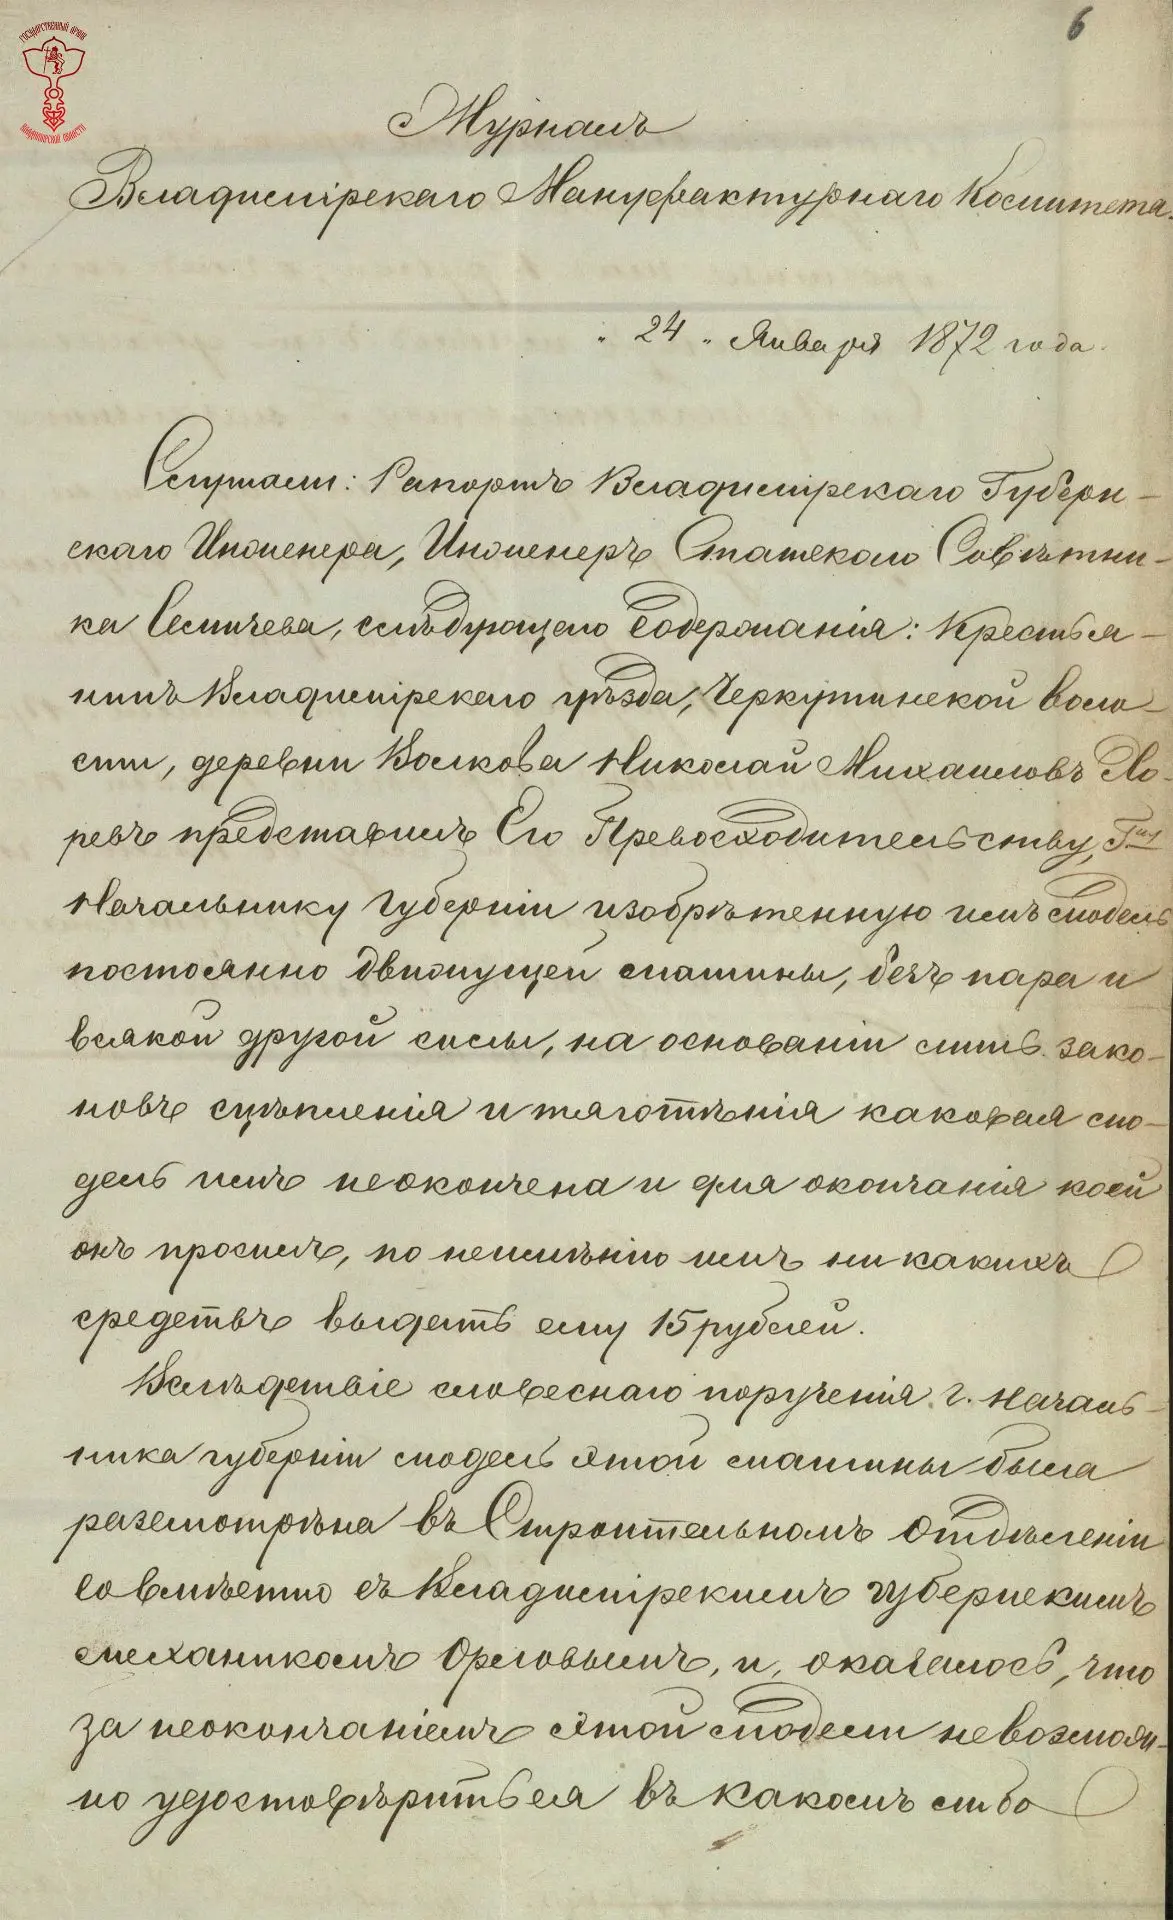 ГОСУДАРСТВЕННЫЙ АРХИВ
ВЛАДИМИРСКОЙ ОБЛАСТИ
6
Журналъ
Владимірскаго Мануфактурнаго Комитета.
„ 24 „ Января 1872 года.
Слушали: Рапортъ Владимірскаго Губерн-
скаго Инженера, Инженеръ Статскаго Совѣтни-
ка Семичева, слѣдующаго содержанія: Крестья-
нинъ Владимірскаго уѣзда, Черкутинской воло-
сти, деревни Волкова Николай Михаиловъ
ревъ представилъ Его Превосходительству, Гну
Начальнику губерніи изобрѣтенную имъ модель
постоянно движущей машины, безъ пара и
всякой другой силы, на основаніи лишь зако-
новъ сцѣпленія и тяготѣнія каковая мо-
дель имъ неокончена и для окончанія коей
онъ проситъ, по неимѣнію имъ ни какихъ
средствъ выдать ему 15 рублей.
Вслѣдствіе словеснаго порученія г. Началь-
ника губерніи модель этой машины была
разсмотрѣна въ Строительномъ Отдѣленіи
совмѣстно съ Владимірскимъ губернскимъ
механикомъ Орловымъ, и, оказалось, что
за неокончаніемъ этой модели невозмож-
но удостовѣриться въ какомъ либо